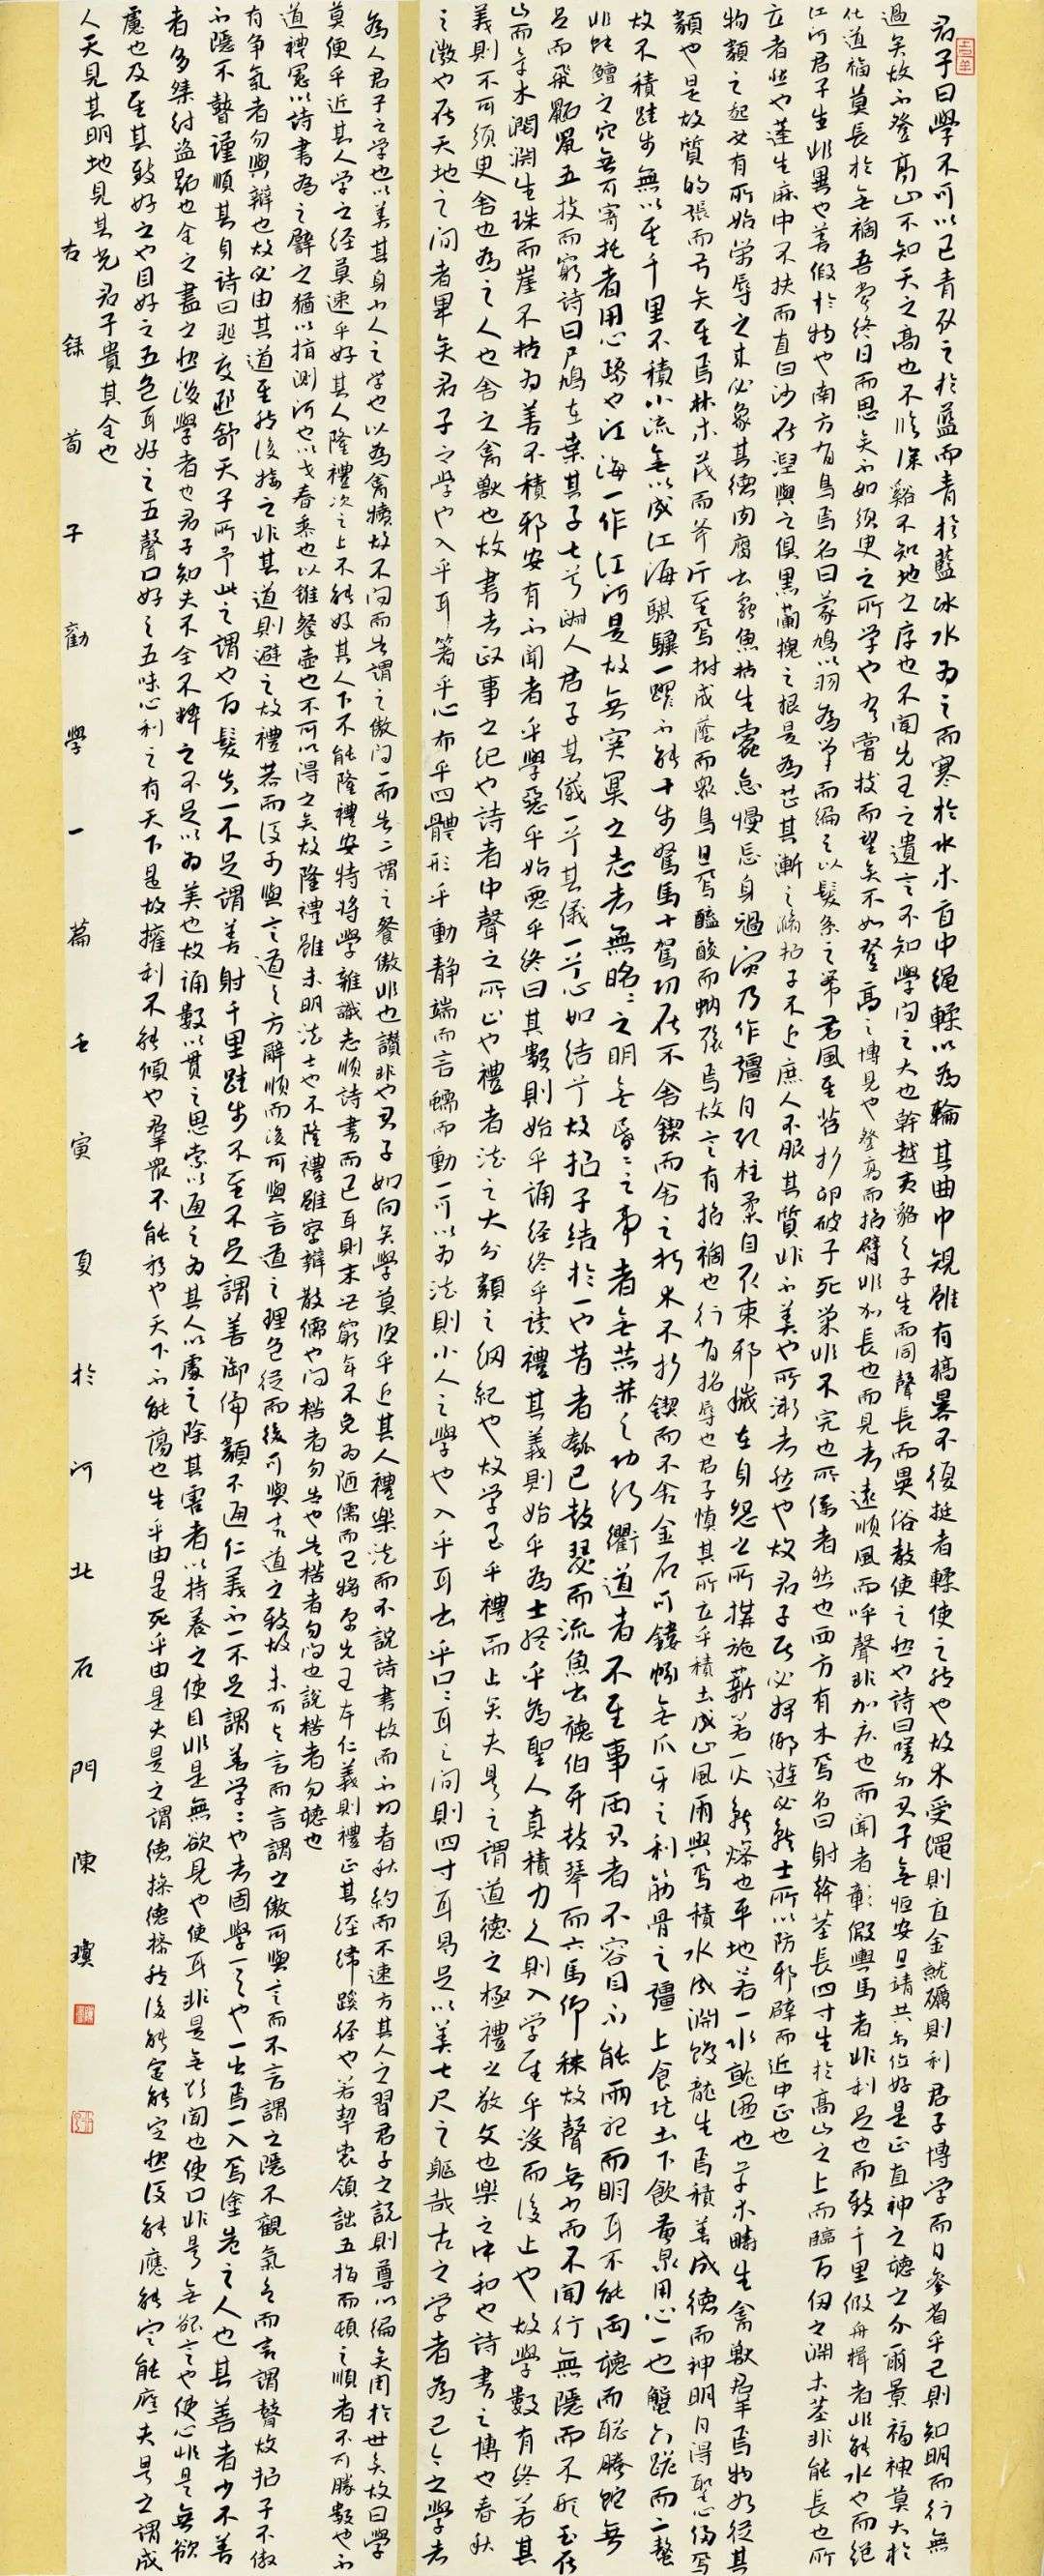 君子曰學不可以已青取之於藍而青於藍冰水為之而寒於水木直中繩輮以為輪其曲中規雖有槁暴不復挺者輮使之然也故木受繩則直金就礪則利君子博學而日參省乎己則知明而行無
過矣故不登高山不知天之高也不臨深谿不知地之厚也不聞先王之遺言不知學問之大也幹越夷貉之子生而同聲長而異俗教使之然也詩曰嗟爾君子無恒安息靖共爾位好是正直神之聽之介爾景福神莫大於
化道福莫長於無禍吾嘗終日而思矣不如須臾之所學也吾嘗跂而望矣不如登高之博見也登高而招臂非加長也而見者遠順風而呼聲非加疾也而聞者彰假輿馬者非利足也而致千里假舟楫者非能水也而絕
江河君子生非異也善假於物也南方有鳥焉名曰蒙鳩以羽為巢而編之以髮系之葦苕風至苕折卵破子死巢非不完也所係者然也西方有木焉名曰射幹莖長四寸生於高山之上而臨百仞之淵木莖非能長也所
立者然也蓬生麻中不扶而直白沙在涅與之俱黑蘭槐之根是為芷其漸之滫君子不近庶人不服其質非不美也所漸者然也故君子居必擇鄉遊必就士所以防邪辟而近中正也
物類之起必有所始榮辱之來必象其德肉腐出蟲魚枯生蠹怠慢忘身禍災乃作彊自取柱柔自取束邪穢在身怨之所構施薪若一火就燥也平地若一水就溼也草木疇生禽獸羣焉物各從其
類也是故質的張而弓矢至焉林木茂而斧斤至焉樹成蔭而眾鳥息焉醯酸而蚋聚焉故言有招禍也行有招辱也君子慎其所立乎積土成山風雨興焉積水成淵蛟龍生焉積善成德而神明自得聖心備焉
故不積跬步無以至千里不積小流無以成江海騏驥一躍不能十步駑馬十駕功在不舍鍥而舍之朽木不折鍥而不舍金石可鏤螾無爪牙之利筋骨之彊上食埃土下飲黃泉用心一也蟹六跪而二螯
非蛇鱓之穴無可寄托者用心躁也江海一作江河是故無冥冥之志者無昭昭之明無惛惛之事者無赫赫之功行衢道者不至事兩君者不容目不能兩視而明耳不能兩聽而聰螣蛇無
足而飛鼫鼠五技而窮詩曰尸鳩在桑其子七兮淑人君子其儀一兮其儀一兮心如結兮故君子結於一也昔者瓠巴鼓瑟而流魚出聽伯牙鼓琴而六馬仰秣故聲無小而不聞行無隱而不形玉在
山而草木潤淵生珠而崖不枯為善不積邪安有不聞者乎學惡乎始惡乎終曰其數則始乎誦經終乎讀禮其義則始乎為士終乎為聖人真積力久則入學至乎沒而後止也故學數有終若其
義則不可須臾舍也為之人也舍之禽獸也故書者政事之紀也詩者中聲之所止也禮者法之大分類之綱紀也故學至乎禮而止矣夫是之謂道德之極禮之敬文也樂之中和也詩書之博也春秋
之微也在天地之間者畢矣君子之學也入乎耳箸乎心布乎四體形乎動靜端而言蠕而動一可以為法則小人之學也入乎耳出乎口口耳之間則四寸耳曷足以美七尺之軀哉古之學者為己今之學者
為人君子之學也以美其身小人之學也以為禽犢故不問而告謂之傲問一而告二謂之囋傲非也讚非也君子如向矣學莫便乎近其人禮樂法而不說詩書故而不切春秋約而不速方其人之習君子之說則尊以徧矣周於世矣故曰學
莫便乎近其人學之經莫速乎好其人隆禮次之上不能好其人下不能隆禮安特將學雜識志順詩書而已耳則末世窮年不免為陋儒而已將原先王本仁義則禮正其經緯蹊徑也若挈裘領詘五指而頓之順者不可勝數也不
道禮憲以詩書為之譬之猶以指測河也以戈舂黍也以錐餐壺也不可以得之矣故隆禮雖未明法士也不隆禮雖察辯散儒也問楛者勿告也告楛者勿問也說楛者勿聽也
有爭氣者勿與辯也故必由其道至然後接之非其道則避之故禮恭而後可與言道之方辭順而後可與言道之理色從而後可與言道之致故未可與言而言謂之傲可與言而不言謂之隱不觀氣色而言謂瞽故君子不傲
不隱不瞽謹順其身詩曰匪交匪舒天子所予此之謂也百發失一不足謂善射千里跬步不至不足謂善御倫類不通仁義不一不足謂善學學也者固學一之也一出焉一入焉塗巷之人也其善者少不善
者多桀紂盜跖也全之盡之然後學者也君子知夫不全不粹之不足以為美也故誦數以貫之思索以通之為其人以處之除其害者以持養之使目非是無欲見也使耳非是無欲聞也使口非是無欲言也使心非是無欲
慮也及至其致好之也目好之五色耳好之五聲口好之五味心利之有天下是故權利不能傾也羣眾不能移也天下不能蕩也生乎由是死乎由是夫是之謂德操德操然後能定能定然後能應能定能應夫是之謂成
人天見其明地見其光君子貴其全也
右錄荀子勸學一篇壬寅夏於河北石門陳瓊